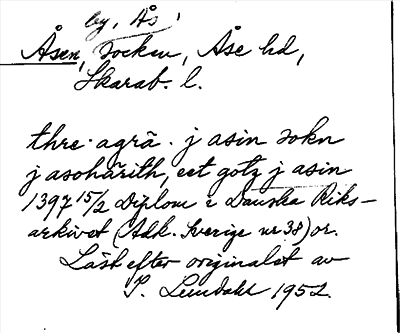 by, Ås
Åsen, socken, Åse hd,
Skarab. l.
thre agrā j asin sokn
j asohärith, eet gotz j asin
1397 15/2 Diplom i Danska Riks-
arkivet (Adk. Sverige nr 38) or.
Läst efter originalet av
I. Lundahl 1952.